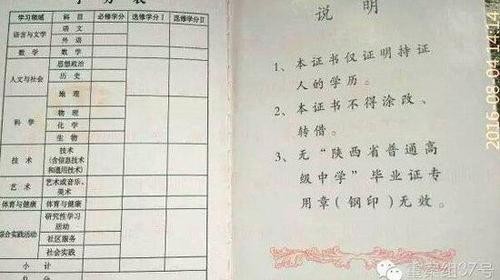 学分表
学习领域 科目 必修学分 选修学分Ⅰ 选修学分Ⅱ
语言与文学 语文
外语
数学 数学
人文与社会 思想政治
历史
地理
科学 物理
化学
生物
技术 技术
(含信息技术
和通用技术)
艺术 艺术或音乐、
美术
体育与健康 体育与健康
综合实践活动 研究性学习
活动
社区服务
社会实践
小计
说明
1、本证书仅证明持证
人的学历。
2、本证书不得涂改、
转借。
3、无“陕西省普通高
级中学”毕业证专
用章(钢印)无效。
重案组37号